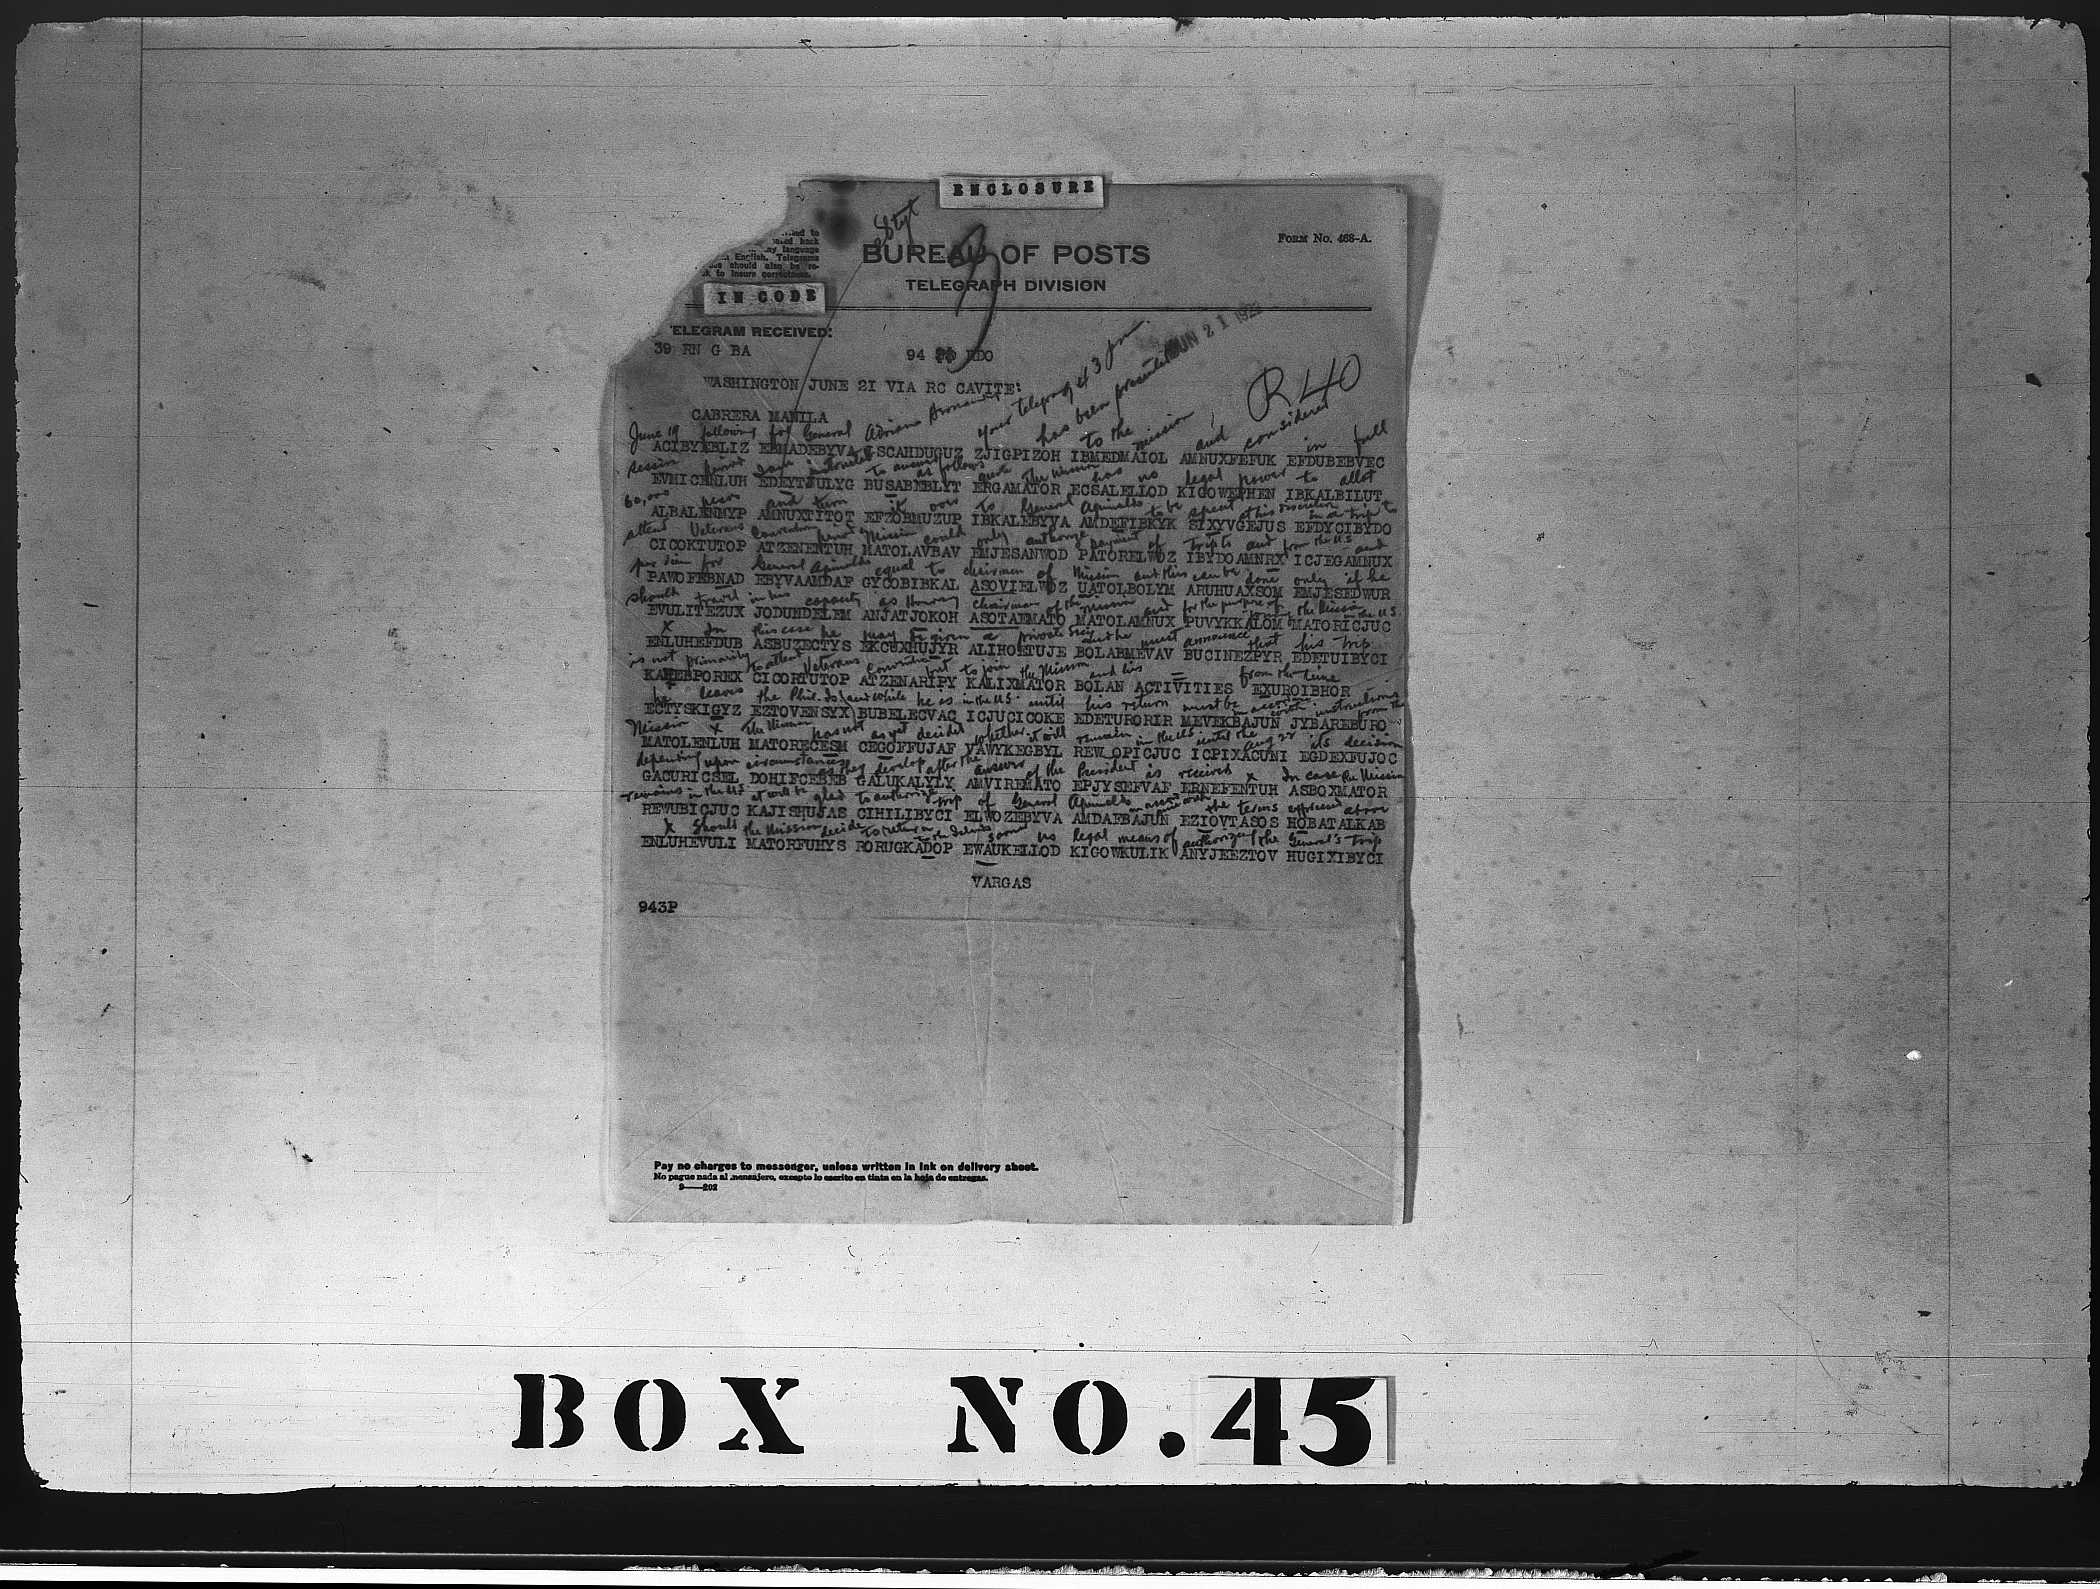 ENCLOSURE
FORM No. 468-A.
BUREAU OF POSTS
TELEGRAPH DIVISION
back
language
English. Telegrams
should also be
to insure correctness.
IN CODE
ELEGRAM RECEIVED:
JUN 21 1922
39 RN G BA 94 RDO
WASHINGTON JUNE 2I VIA RC CAVITE:
R 40
CABRERA MANILA
your telegram 43 has been presented to the mission and considered
June 19 following for General Adriano in full
ACIBYEBLIZ EBMADEBYVA FSCAHDUGUZ ZJIGPIZOH IBMEDMAIOL AMNUXFEFUK EFDUBEBVEC
session period I am instructed to answer as follows quote The Mission has no legal power to allot
EVHICENLUH EDEYTJULYG BUSABEBLYT ERGAMATOR ECSALELLOD KIGOWEPHEN IBKALBILUT
60,000 pesos and turn it over to General Aguinaldo to be spent at his discretion in a trip to
ALBALENMYP AMNUXTITOT EFZOBMUZUP IBKALEBYVA AMDEFIBKYK SIXYVGEJUS EFDYCIBYDO
attend Veterans Convention period Mission could only authorize payment of trips to and from the U.S. and
CICOKTUTOP ATZENENTUH MATOLAVBAV EMJESANWOD PATORELWOZ IBYDOAMNRX ICJEGAMNUX
per diem for General Aguinaldo equal to chairman of Mission and this can be done only if he
PAWOFEBNAD EBYVAAMDAF GYCOBIBKAL ASOVIELWOZ UATOLBOLYM ARUHUAXSOM EMJESEDWUR
should travel in his capacity as Honorary Chairman of the Mission and for the purpose of joining the Mission in the U.S.
EVULITEZUX JODUHDELEM ANJATJOKOH ASOTAEMATO MATOLAMNUX PUVYKKALOM MATORICJUC
x In this case he may be given a private secy and he must announce that his trip
ENLUHEFDUB ASBUZECTYS EKCUXHUJYR ALIHOETUJE BOLABMEVAV BUCINEZPYR EDETUIBYCI
is not primarily to attend Veterans Convention but to join the Mission and his from the time
KAPEBPOREX CICORTUTOP ATZENARIPY KALIXMATOR BOLAN ACTIVITIES EXUROIBHOR
he leaves the Phil. Is. and while he is in the U.S. until his return must be in accord with instructions from the
ECTYSKIGYZ EZTOVENSYX BUBELECVAC ICJUCICOKE EDETURORIR MEVEKBAJUN JYBAREBURO
Mission x The Mission has not as yet decided whether it will remain in the U.S. until the Aug 22 its decision
MATOLENLUH MATORECESM CEGOFFUJAF VAWYKEGBYL REW OPICJUC ICPIXACUNI EGDEXFUJOC
depending upon circumstances as they develop after the answer of the President is received x In case the Mission
GACURICSEL DOHIFCEBEB GALUKALYLY AMVIREMATO EPJYSEFVAF ERNEFENTUH ASBOXMATOR
remains in the U.S. it will be glad to authorize trip of General Aguinaldo in accord with the terms expressed above
REWUBICJUC KAJISHUJAS CIHILIBYCI ELWOZEBYVA AMDAFBAJUN EZIOVTASOS HOBATALKAB
x Should the Mission decide to return no legal means of authorizing the General's trip
ENLUHEVULI MATORFUHYS RORUGKADOP EWAUKELLOD KIGOWKULIK ANYJEEZTOV HUGIXIBYCI
VARGAS
943P
Pay no charges to messenger, unless written in ink on delivery sheet.
No pague nada al mensajero, excepto lo escrito en tinta en la hoja de entregas.
9——202
BOX NO. 45